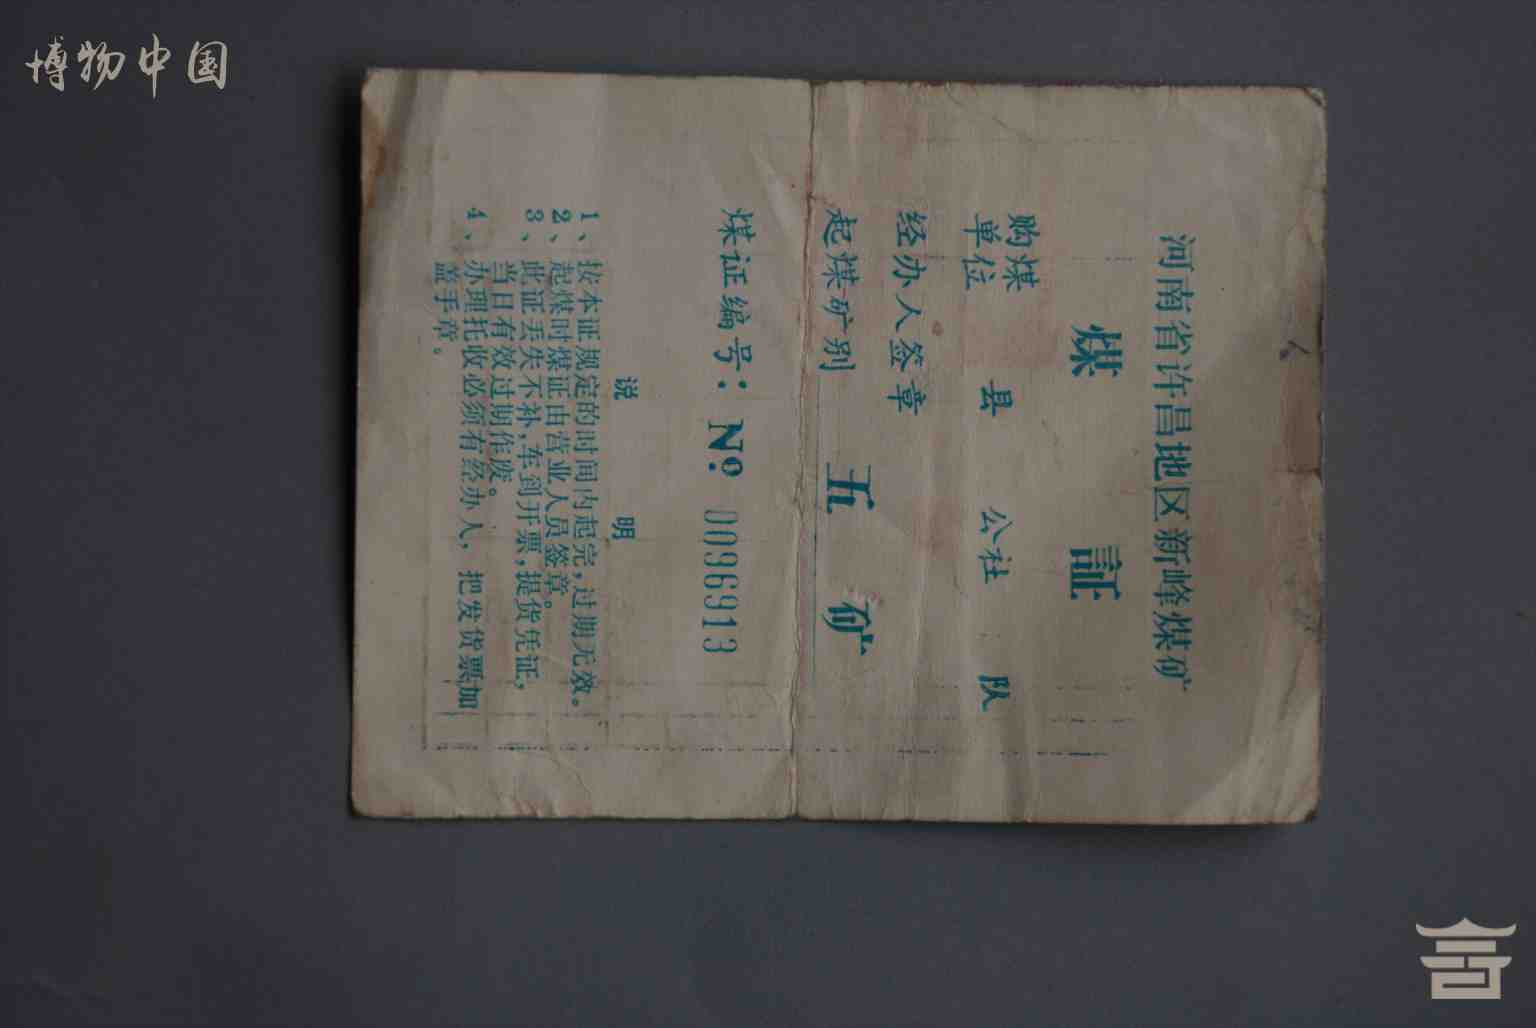 博物中国
河南省许昌地区新峰煤矿
煤 証
购煤
单位 县 公社 队
经办人签章
起煤矿别 五 矿
煤证编号：№ 0096913
说 明
1、按本证规定的时间内起完，过期无效。
2、起煤时煤证由营业人员签章。
3、此证丢失不补，车到开票，提货凭证，
当日有效过期作废。
4、办理托收必须有经办人，把发货票加
盖手章。